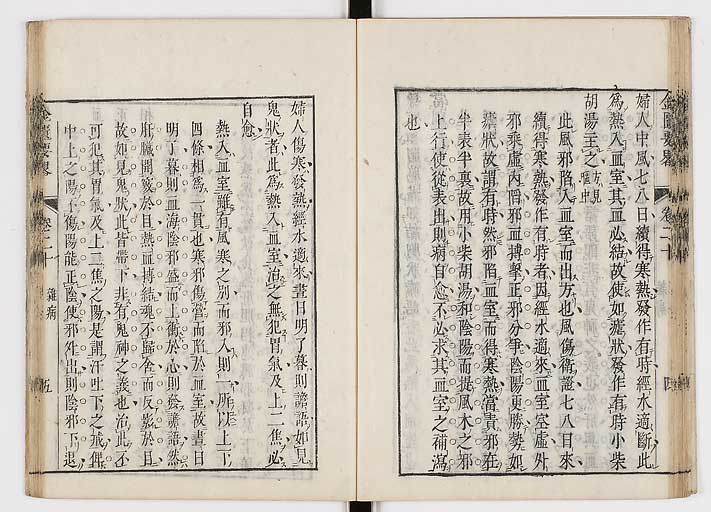 金匱要畧 卷二十 四
婦人中風七八日續得寒熱發作有時經水適斷此
爲熱入血室其血必結故使如瘧狀發作有時小柴
胡湯主之方見嘔中
此風邪陷入血室而出方也風傷衛證七八日來
續得寒熱發作有時者因經水適來血室空虛外
邪乘虛内陷邪血搏擊正邪分爭陰陽更勝勢如
瘧狀故謂有時然邪陷血室而得寒熱當責邪在
半表半裏故用小柴胡湯和陰陽而提風木之邪
上行使從表出則病自愈不必求其血室之補瀉
也
婦人傷寒發熱經水適來晝日明了暮則譫語如見
鬼狀者此爲熱入血室治之無犯胃氣及上二焦必
自愈
熱入血室雖有風寒之別而邪入則一所以上下
四條相爲一貫也寒邪傷營而陷於血室故晝日
明了暮則血海陰邪盛而上衝於心則發譫語然
肝臟開竅於目熱血搏結魂不歸舍而反發於目
故如見鬼狀此皆帶下非有鬼神之義也治此不
可犯其胃氣及上二焦之陽是謂汗吐下之戒俾
中上之陽不傷陽能正陰使邪外出則陰邪下退
金匱要畧 卷二十 雜病 五